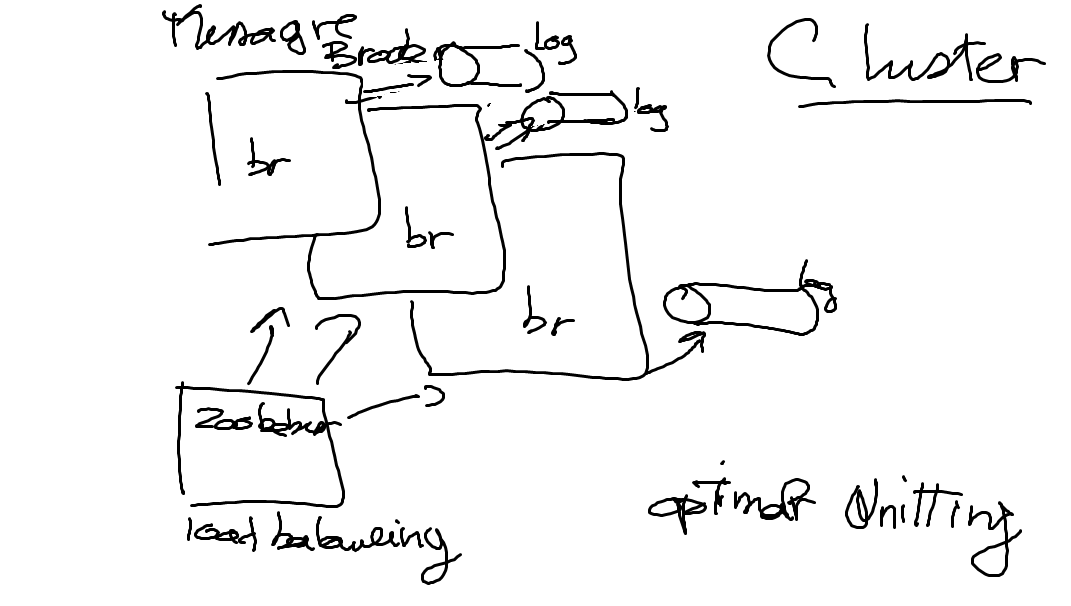 Message
Broker
log
Cluster
log
br
br
br
log
Zookeeper
load balancing
optimal